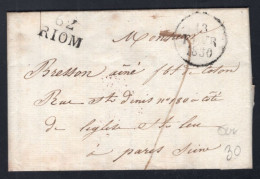 62
RIOM
13
1830
Monsieur
Bresson ainé fbt de Coton
Rue St Denis n° 180 a côté
de l'église St Leu
à paris Seine
30